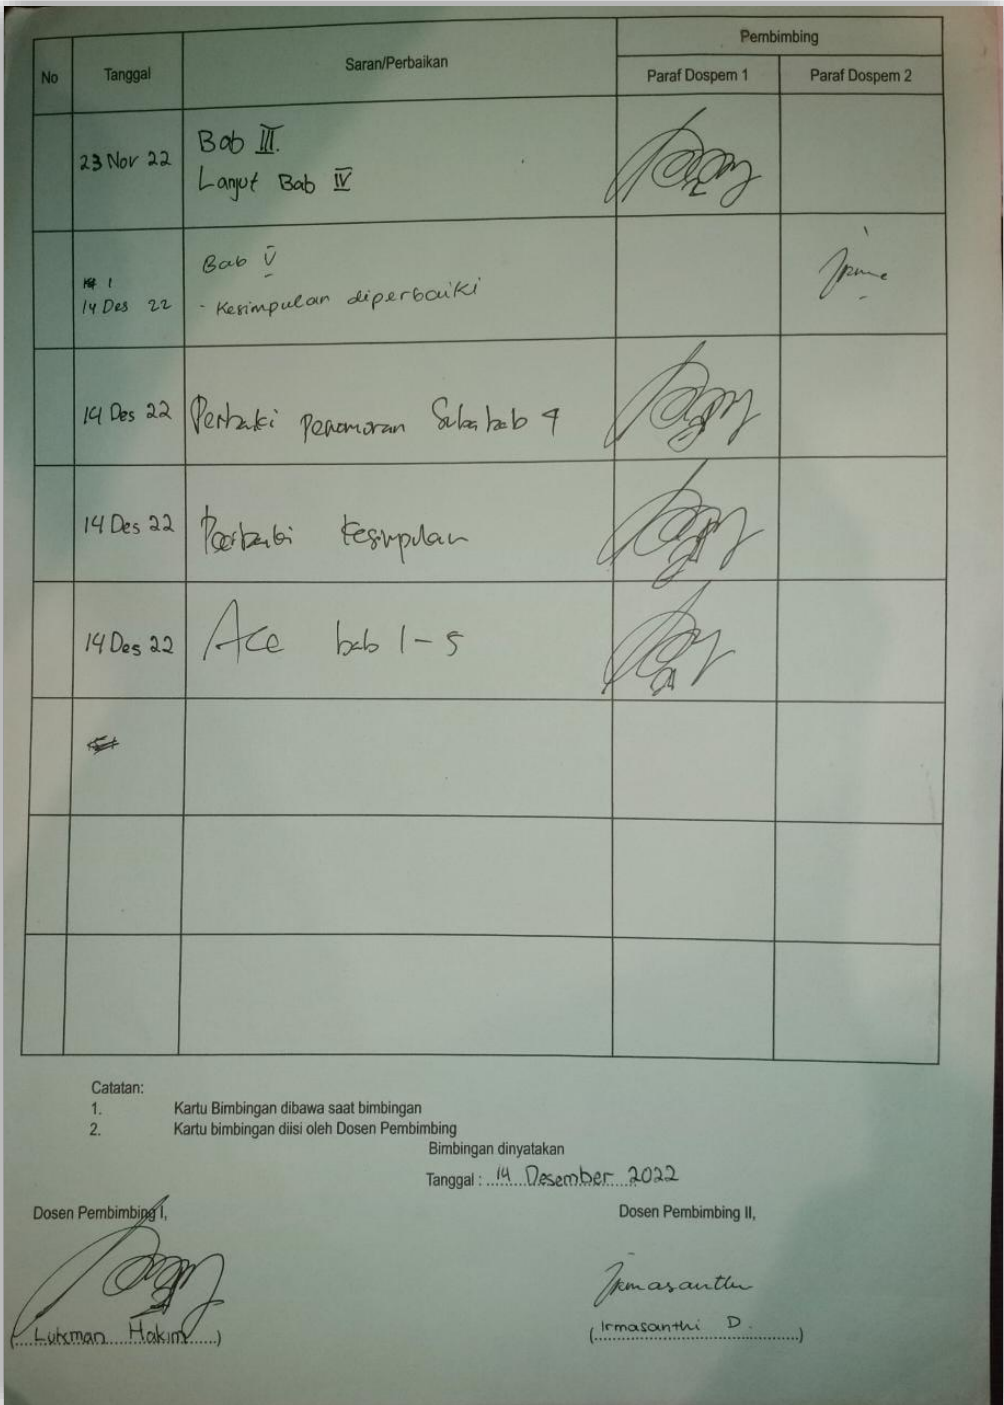 No Tanggal Saran/Perbaikan Pembimbing
Paraf Dospem 1 Paraf Dospem 2
23 Nov 22 Bab III.
Lanjut Bab IV
Bab V
14 Des 22 - Kesimpulan diperbaiki
14 Des 22 Perbaki penomoran Subabab 4
14 Des 22 Perbaki Kesimpulan
14 Des 22 Acc bab 1-5
Catatan:
1. Kartu Bimbingan dibawa saat bimbingan
2. Kartu bimbingan diisi oleh Dosen Pembimbing
Bimbingan dinyatakan
Tanggal : 14 Desember 2022
Dosen Pembimbing I, Dosen Pembimbing II,
Irmasanthi
(Lukman Hakim) (Irmasanthi D.)